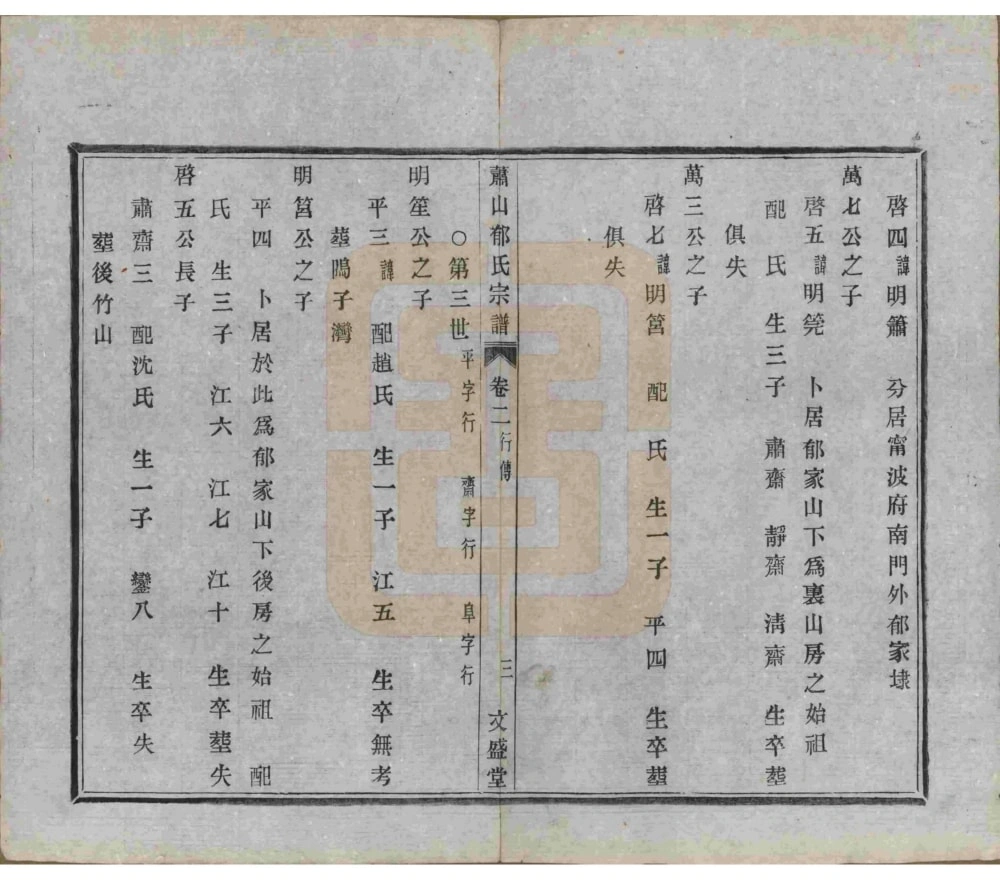 啓四諱明簫　分居甯波府南門外郁家埭
萬七公之子
啓五諱明筦　卜居郁家山下爲裏山房之始祖
配　氏　生三子　肅齋　靜齋　清齋　生卒塟
俱失
萬三公之子
啓七諱明筥　配　氏　生一子　平四　生卒塟
俱失
蕭山郁氏宗譜　卷二　行傳　三　文盛堂
○第三世　平字行　齋字行　阜字行
明笙公之子
平三諱　配趙氏　生一子　江五　生卒無考
塟鴫子灣
明筥公之子
平四　卜居於此爲郁家山下後房之始祖　配
氏　生三子　江六　江七　江十　生卒塟失
啓五公長子
肅齋三　配沈氏　生一子　鑾八　生卒失
塟後竹山